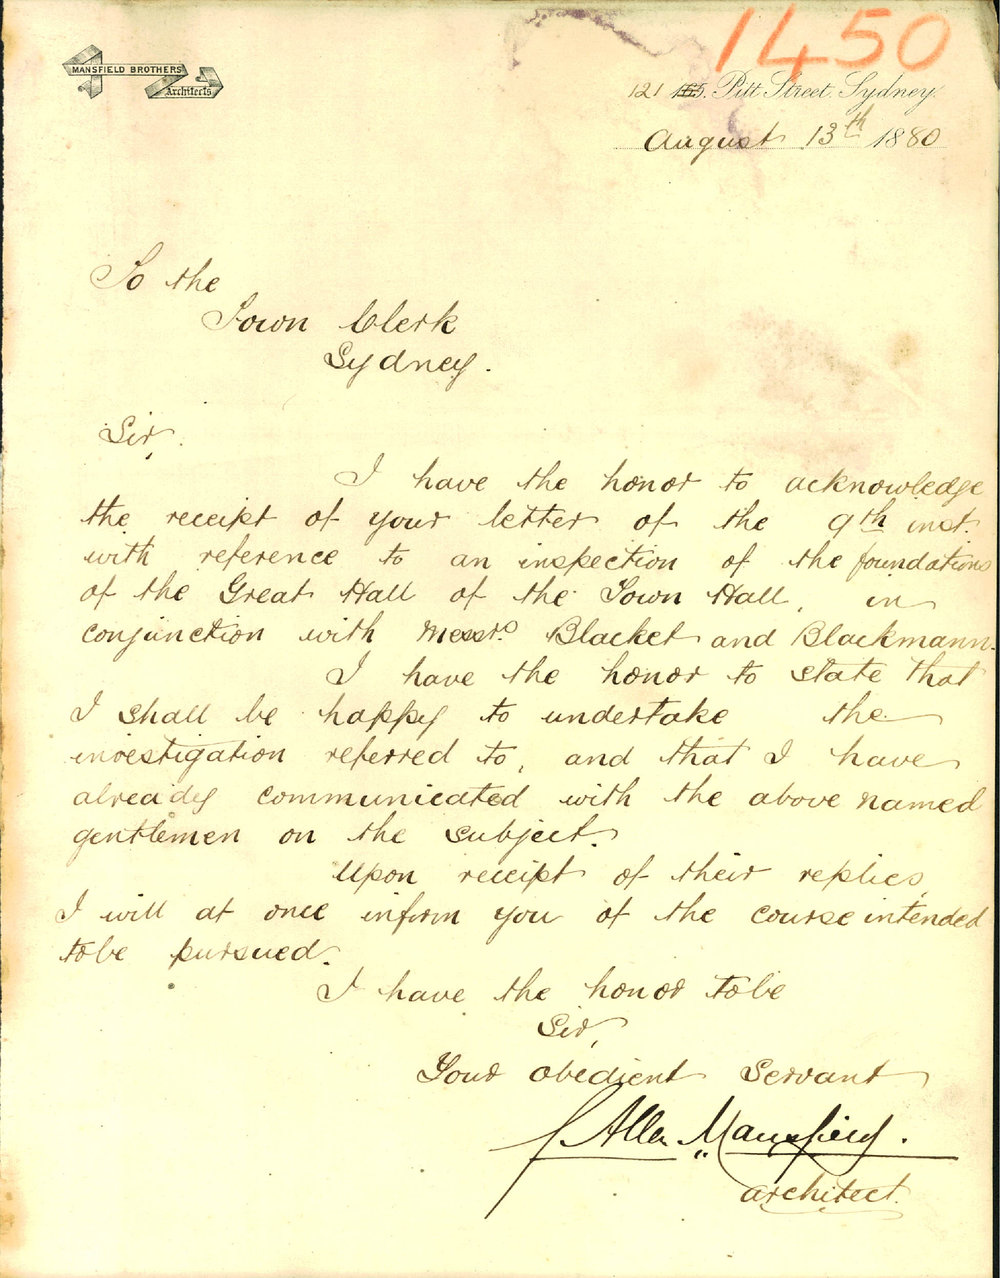 1450
MANSFIELD BROTHERS
Architects
121 Pitt Street. Sydney.
August 13th 1880
To the
Town Clerk
Sydney.
Sir,
I have the honor to acknowledge
the receipt of your letter of the 9th inst.
with reference to an inspection of the foundations
of the Great Hall of the Town Hall, in
conjunction with Messrs. Blacket and Blackmann.
I have the honor to state that
I shall be happy to undertake the
investigation referred to, and that I have
already communicated with the above named
gentlemen on the subject.
Upon receipt of their replies,
I will at once inform you of the course intended
to be pursued.
I have the honor to be
Sir,
Your obedient Servant
G Allen Mansfield.
architect.